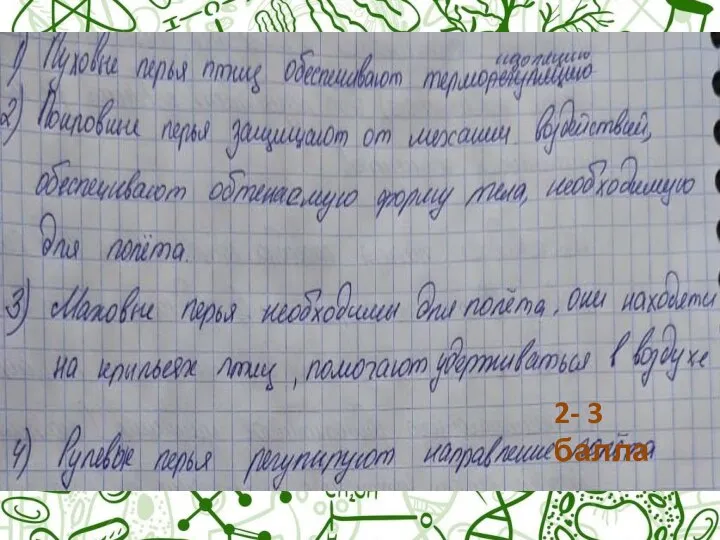 изоляцию
1) Пуховые перья птиц обеспечивают терморегуляцию
2) Покровные перья защищают от механич. воздействий,
обеспечивают обтекаемую форму тела, необходимую
для полёта.
3) Маховые перья необходимы для полёта, они находятся
на крыльях птиц, помогают удерживаться в воздухе
2- 3
балла
4) Рулевые перья регулируют направление полёта
CH₂OH